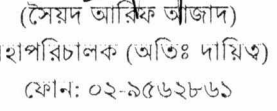 (সৈয়দ আরিফ আজাদ)
মহাপরিচালক (অতিঃ দায়িত্ব)
ফোন: ০২-৯৫৬২৮৬১